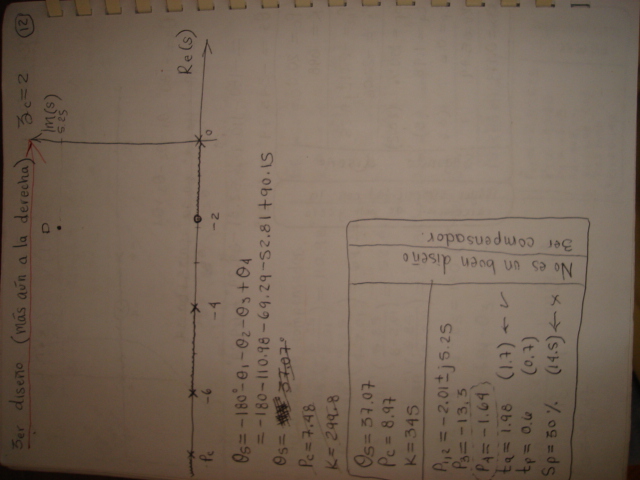 3er diseño (más aún a la derecha) Zc=2 (12)
Im(s)
5.25
P
Re(s)
Pc -6 -4 -2 0
θ5 = -180° - θ1 - θ2 - θ3 + θ4
= -180 - 110.98 - 69.29 - 52.81 + 90.15
θ5 = 37.07°
Pc = 7.98
K = 299.8
θ5 = 37.07
Pc = 8.97
K = 345
P1,2 = -2.01 ± j5.25
P3 = -13.3
(P4 = -1.64)
ta = 1.98 (1.7) ← ✓
tp = 0.6 (0.7)
Sp = 30 % (14.5) ← ×
No es un buen diseño
3er compensador.